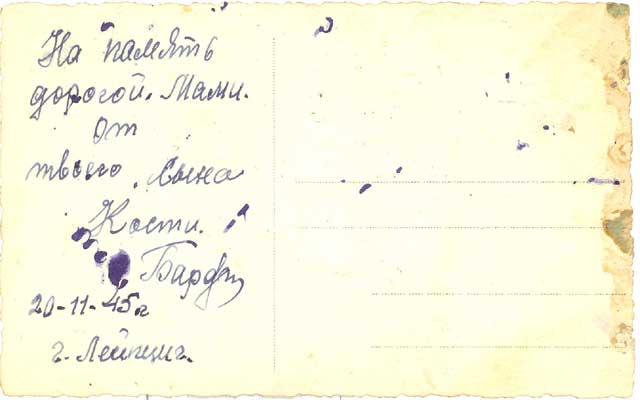 На память
дорогой. Мами.
От
твоего. сына
Кости.
20-11-45 г
г. Лейпциг.